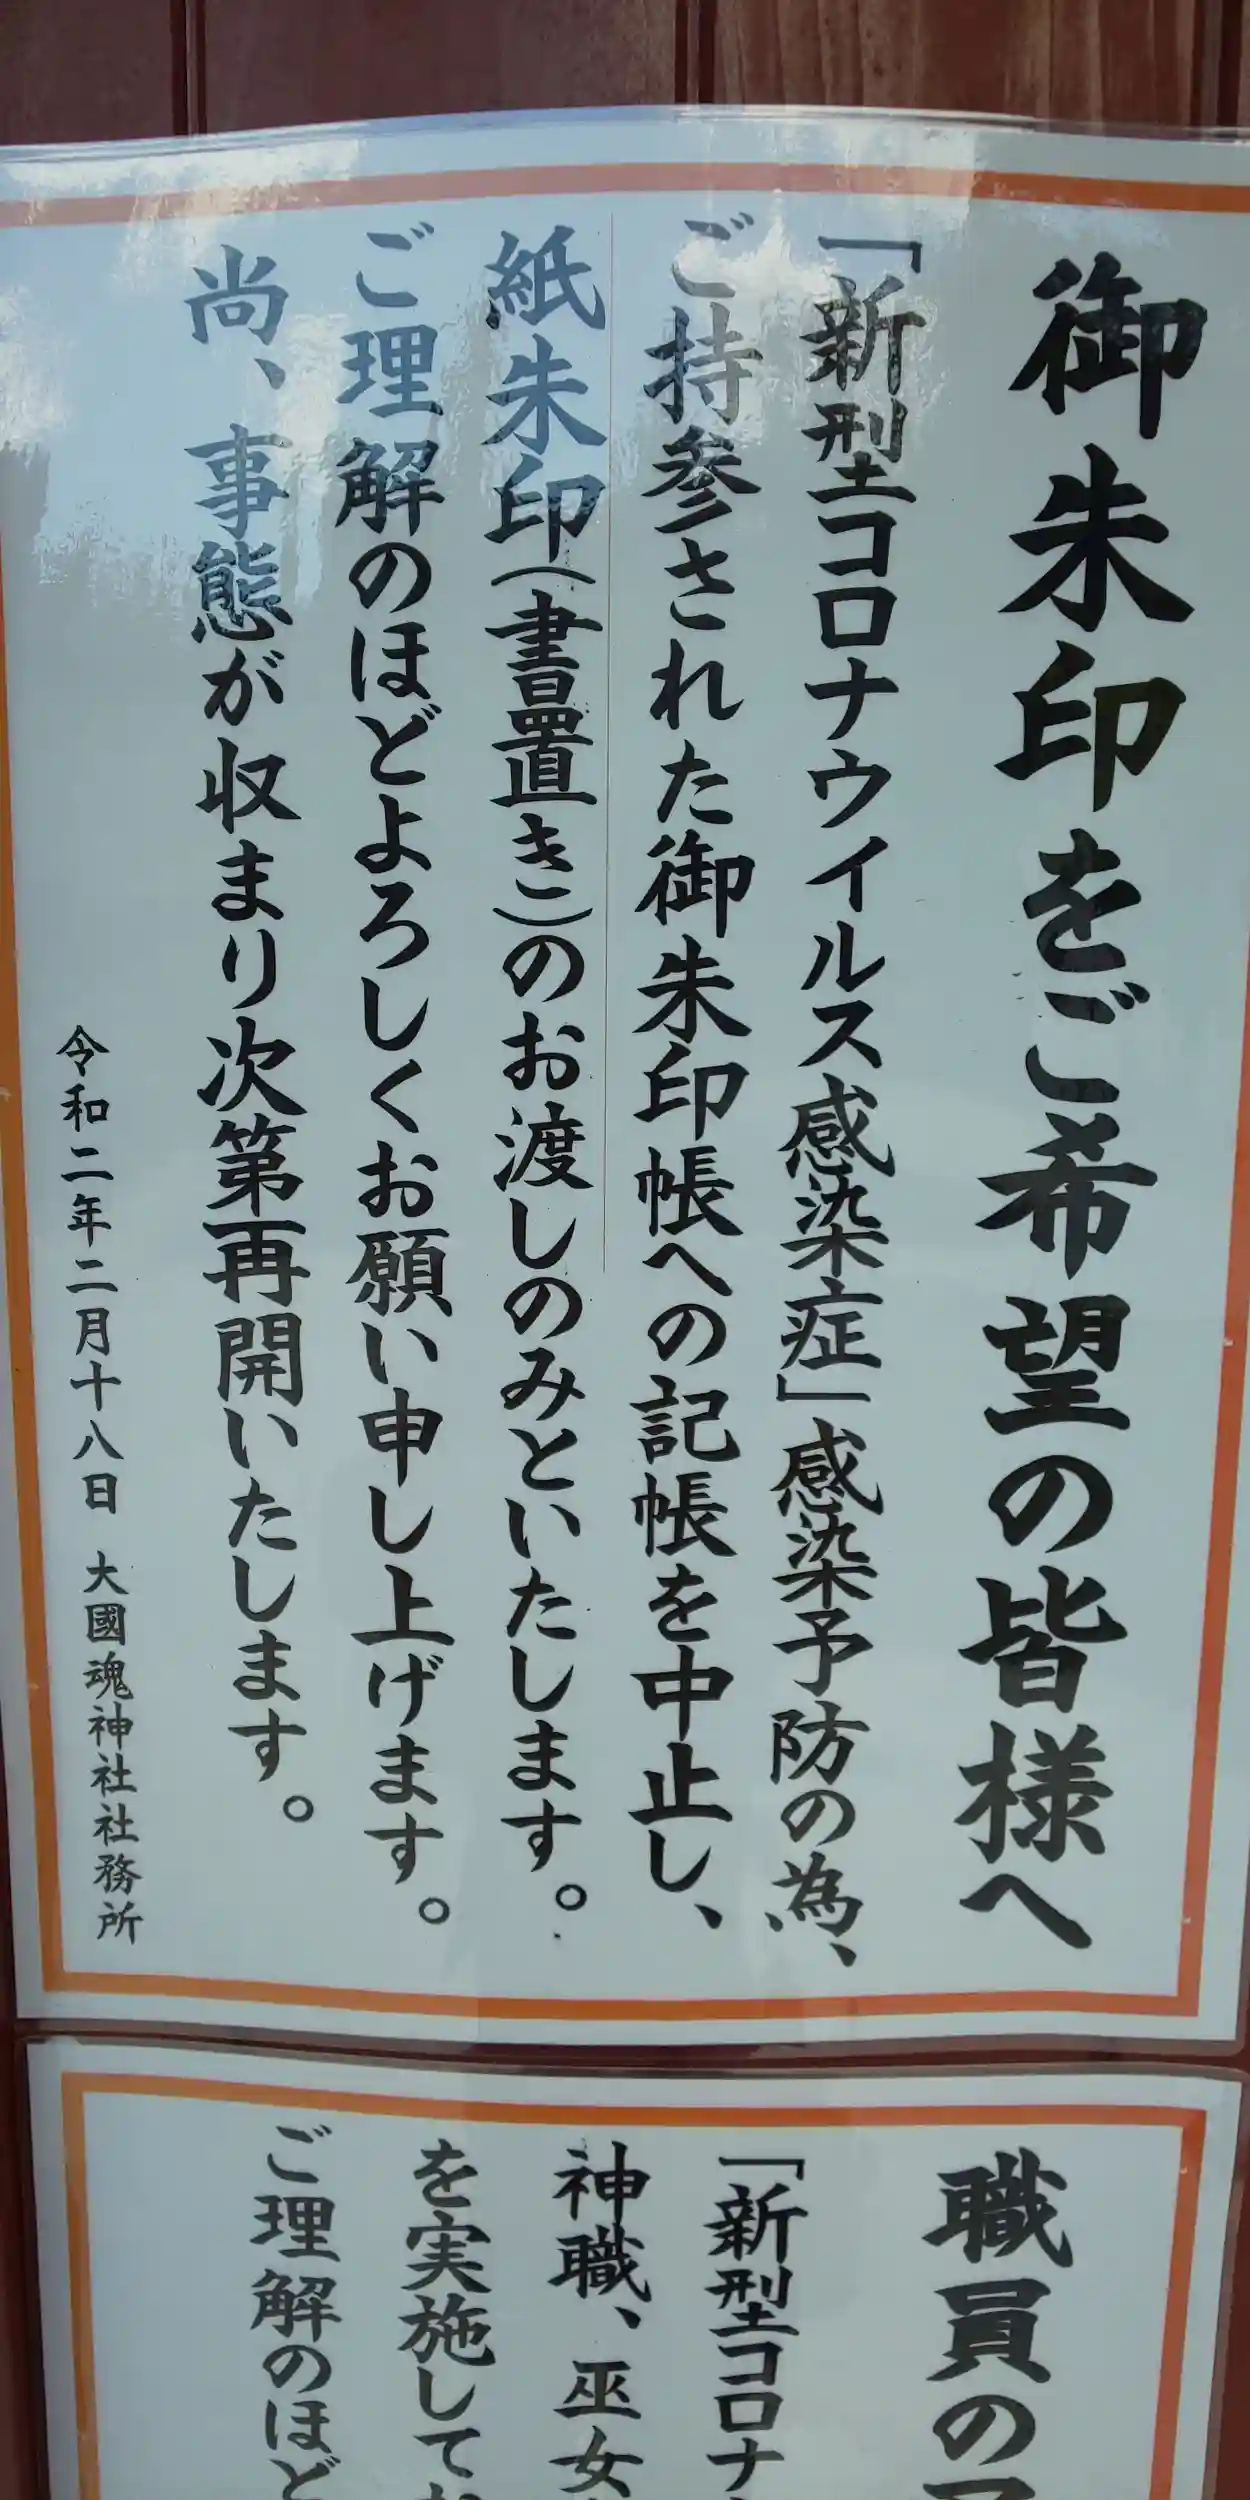 御朱印をご希望の皆様へ
「新型コロナウィルス感染症」感染予防の為、
ご持参された御朱印帳への記帳を中止し、
紙朱印(書置き)のお渡しのみといたします。
ご理解のほどよろしくお願い申し上げます。
尚、事態が収まり次第再開いたします。
令和二年二月十八日 大國魂神社社務所
職員の
「新型コロナ
神職、巫女
を実施して
ご理解のほど